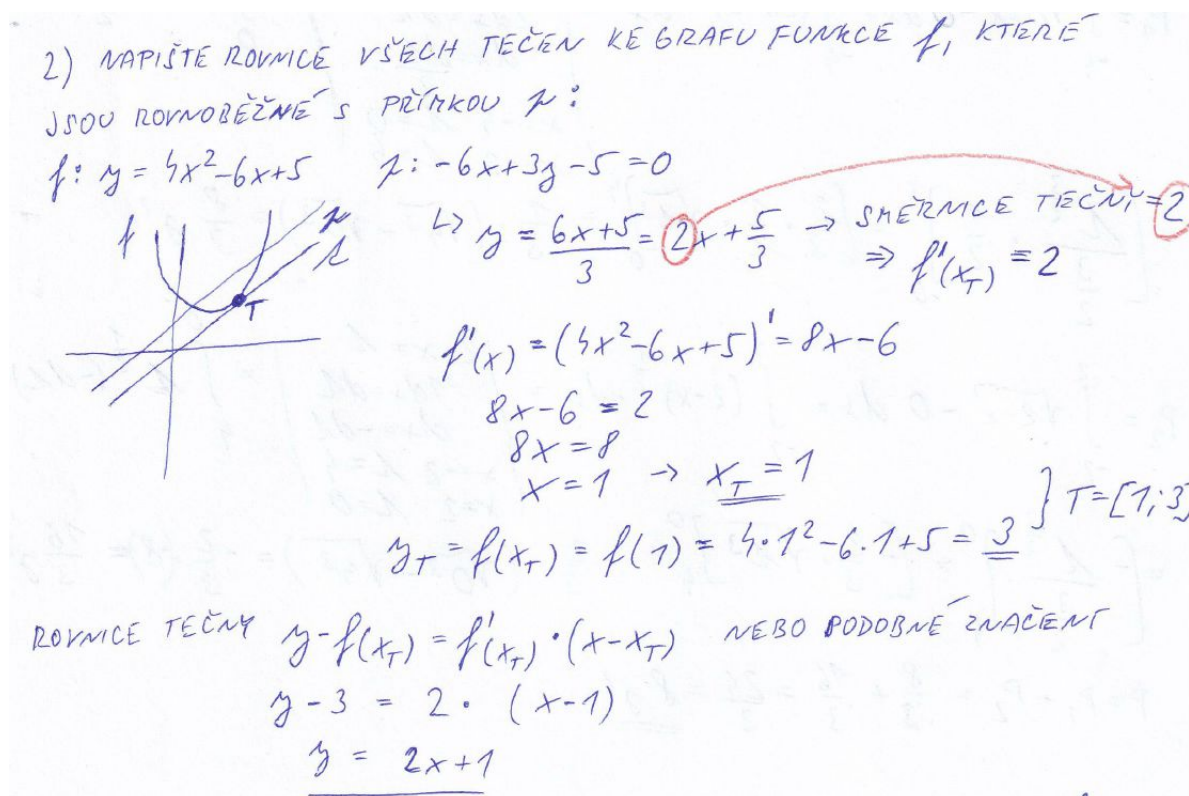 2) NAPIŠTE ROVNICE VŠECH TEČEN KE GRAFU FUNKCE f, KTERÉ
JSOU ROVNOBĚŽNÉ S PŘÍMKOU p:
f: y = 4x²-6x+5 p: -6x+3y-5=0
↳ y = (6x+5)/3 = 2x + 5/3 → SMĚRNICE TEČNY = 2
⇒ f'(x_T) = 2
f p
t
T
f'(x) = (4x²-6x+5)' = 8x-6
8x-6 = 2
8x = 8
x = 1 → x_T = 1
y_T = f(x_T) = f(1) = 4·1²-6·1+5 = 3 } T=[1;3]
ROVNICE TEČNY y-f(x_T) = f'(x_T)·(x-x_T) NEBO PODOBNÉ ZNAČENÍ
y-3 = 2·(x-1)
y = 2x+1